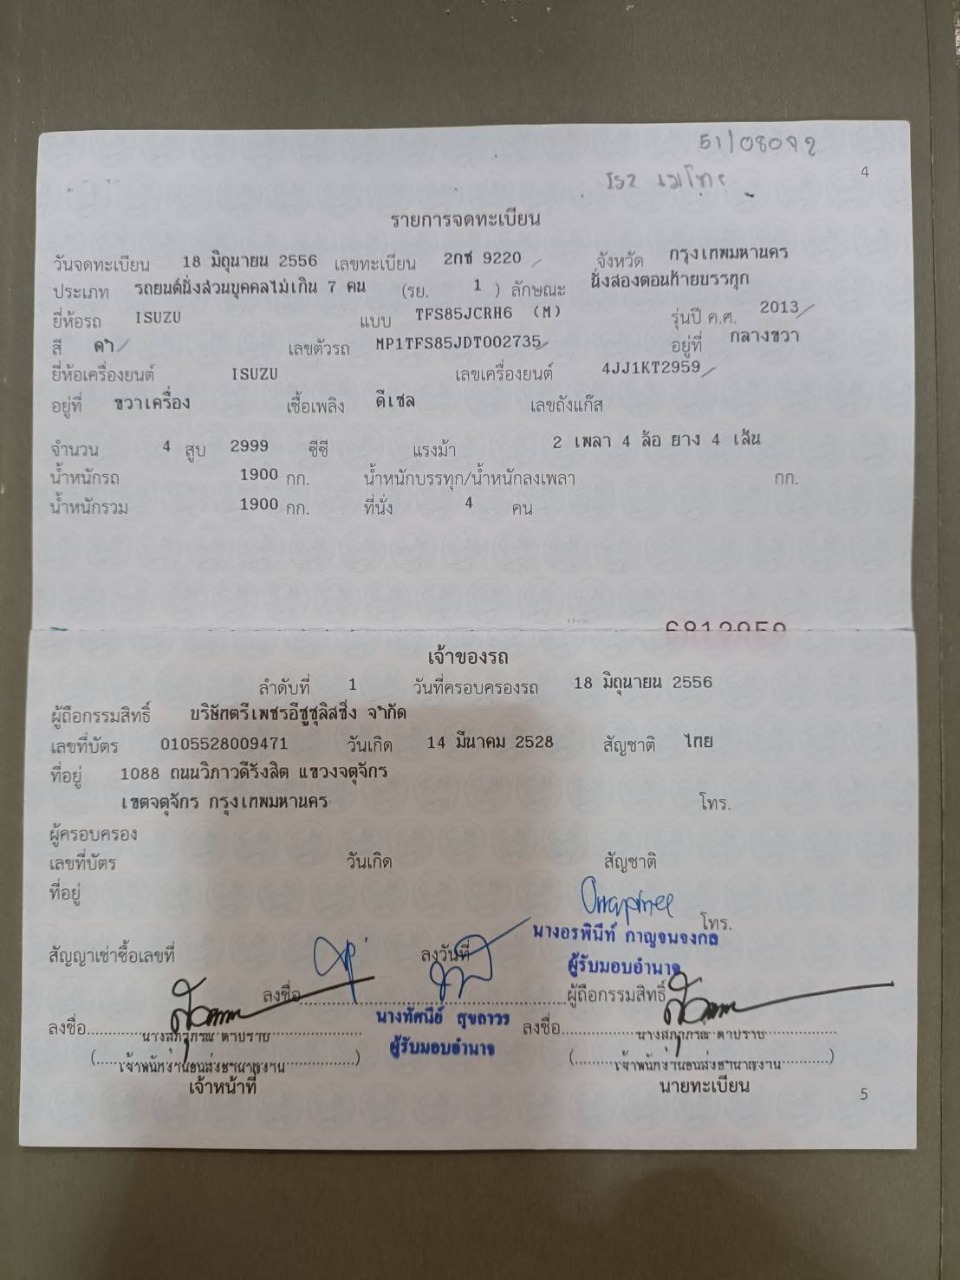 51/08092
4
รายการจดทะเบียน
วันจดทะเบียน 18 มิถุนายน 2556 เลขทะเบียน 2กช 9220 จังหวัด กรุงเทพมหานคร
ประเภท รถยนต์นั่งส่วนบุคคลไม่เกิน 7 คน (รย. 1 ) ลักษณะ นั่งสองตอนท้ายบรรทุก
ยี่ห้อรถ ISUZU แบบ TFS85JCRH6 (M) รุ่นปี ค.ศ. 2013
สี ดำ เลขตัวรถ MP1TFS85JDT002735 อยู่ที่ กลางขวา
ยี่ห้อเครื่องยนต์ ISUZU เลขเครื่องยนต์ 4JJ1KT2959
อยู่ที่ ขวาเครื่อง เชื้อเพลิง ดีเซล เลขถังแก๊ส
จำนวน 4 สูบ 2999 ซีซี แรงม้า 2 เพลา 4 ล้อ ยาง 4 เส้น
น้ำหนักรถ 1900 กก. น้ำหนักบรรทุก/น้ำหนักลงเพลา กก.
น้ำหนักรวม 1900 กก. ที่นั่ง 4 คน
เจ้าของรถ
ลำดับที่ 1 วันที่ครอบครองรถ 18 มิถุนายน 2556
ผู้ถือกรรมสิทธิ์ บริษัทตรีเพชรอีซูซุลิสซิ่ง จำกัด
เลขที่บัตร 0105528009471 วันเกิด 14 มีนาคม 2528 สัญชาติ ไทย
ที่อยู่ 1088 ถนนวิภาวดีรังสิต แขวงจตุจักร
เขตจตุจักร กรุงเทพมหานคร โทร.
ผู้ครอบครอง
เลขที่บัตร วันเกิด สัญชาติ
ที่อยู่ โทร.
นางอรพินีท์ กาญจนจงกล
สัญญาเช่าซื้อเลขที่ ลงวันที่ ผู้รับมอบอำนาจ
ลงชื่อ ผู้ถือกรรมสิทธิ์
นางทัศนีย์ สุขถาวร
ผู้รับมอบอำนาจ
ลงชื่อ ลงชื่อ
เจ้าหน้าที่ นายทะเบียน
5